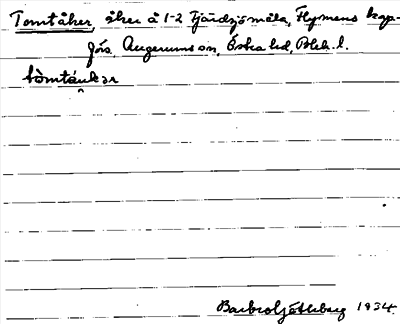 Tomtåker, åker å 1-2 Tjärdsjömåla, Flymens kap-
förs. Augerums sn, Östra hd, Blek. l.
tòmtánkar
Barbro Götheberg 1934.